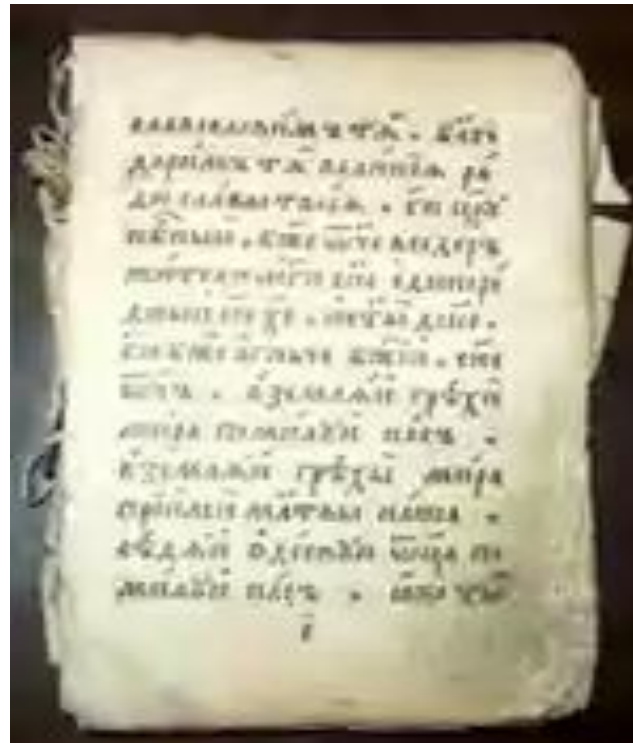 славословимъ тѧ . бл҃го
даримъ тѧ великїѧ ра
ди славы твоеѧ . гд҃и цр҃ю
нб҃ныи . бж҃е ѿч҃е вседер
гд҃и сн҃е единоро
дныи і҃се х҃е . и ст҃ыи дш҃е .
гд҃и бж҃е агньче бж҃їи . сн҃е
ѿч҃ь . вземлѧи грѣхи
мира помилꙋи насъ .
вземлѧи грѣхы мира
прїими мл҃твы наша .
сѣдѧи ѡдеснꙋю ѿц҃а по
милꙋи насъ . ꙗко ты